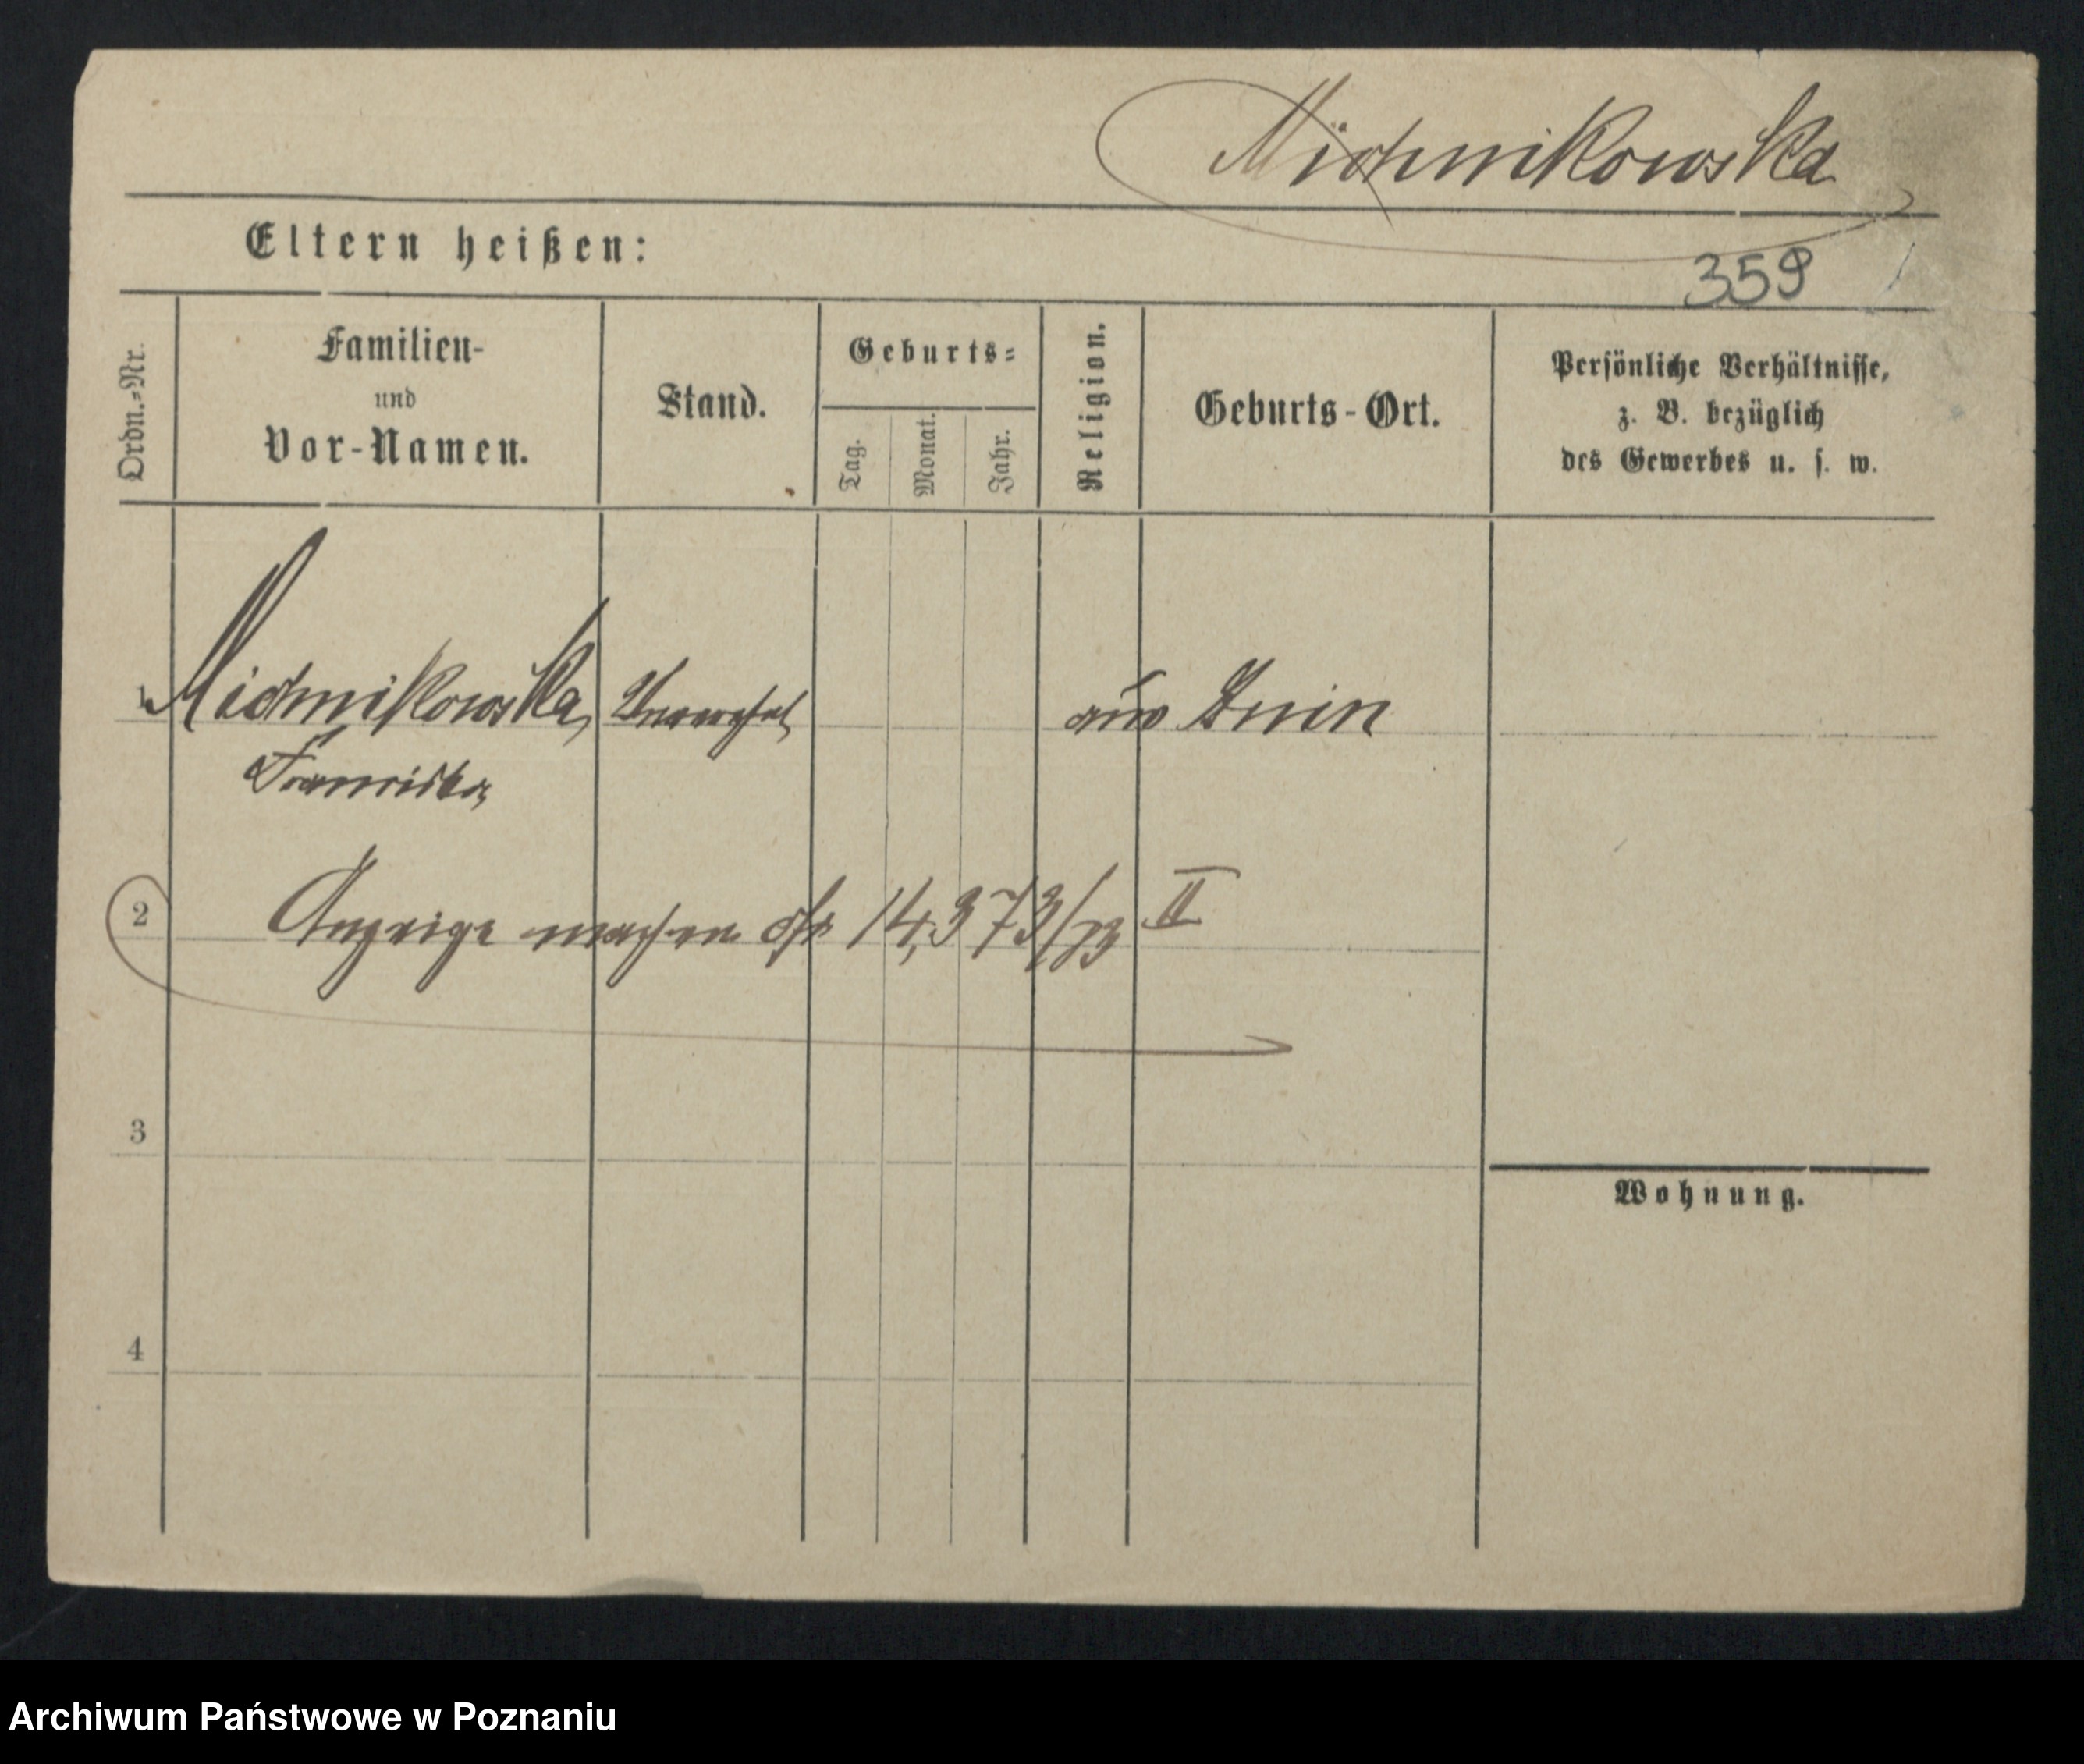 Michnikowska
Eltern heißen:
359
Ordn.-Nr.
Familien-
und
Vor-Namen.
Stand.
Geburts-
Tag.
Monat.
Jahr.
Religion.
Geburts-Ort.
Persönliche Verhältnisse,
z. B. bezüglich
des Gewerbes u. s. w.
1 Michnikowska, Unverehel. aus Znin
Franciska
2 Anzeige machen 14,373/93 II
3
Wohnung.
4
Archiwum Państwowe w Poznaniu